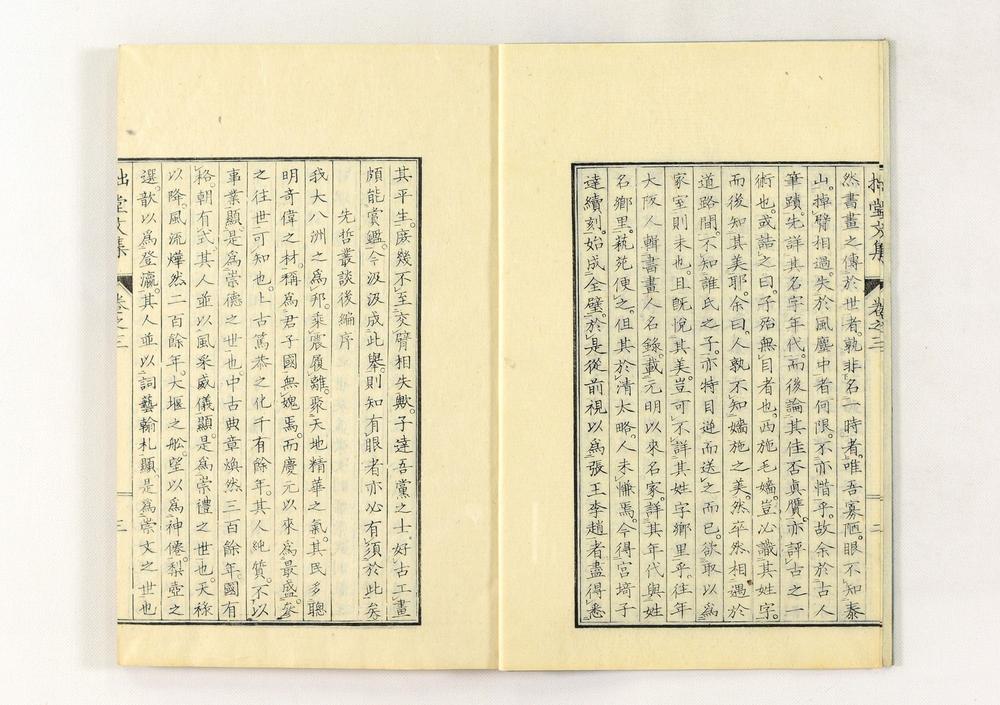 拙堂文集 卷之三 二
然書畫之傳於世者。孰非名一時者。唯吾寡陋。眼不知泰
山。掉臂相過。失於風塵中者何限。不亦惜乎。故余於古人
筆蹟。先詳其名字年代。而後論其佳否眞贋。亦評古之一
術也。或詰之曰。子殆無目者也。西施毛嬙。豈必識其姓字。
而後知其美耶。余曰。人孰不知嬙施之美。然卒然相遇於
道路間。不知誰氏之子。亦特目逆而送之而已。欲取以爲
家室則未也。且既悅其美。豈可不詳其姓字鄉里乎。往年
大阪人輯書畫人名錄。載元明以來名家。詳其年代與姓
名鄉里。藝苑便之。但其於清太略。人未慊焉。今得宮埼子
達續刻。始成全璧。於是從前視以爲張王李趙者盡得悉
其平生。庶幾不至交臂相失歟。子達吾黨之士。好古工畫
頗能賞鑑。今汲汲成此舉。則知有眼者亦必有須於此矣
先哲叢談後編序
我大八洲之爲邦。乘震履離。聚天地精華之氣。其民多聰
明奇偉之材。稱爲君子國無媿焉。而慶元以來爲最盛。夌
之往世可知也。上古篤恭之化千有餘年。其人純質。不以
事業顯。是爲崇德之世也。中古典章煥然三百餘年。國有
格。朝有式。其人並以風采威儀顯。是爲崇禮之世也。天祿
以降。風流燁然二百餘年。大堰之舩。望以爲神僊。梨壺之
選。歆以爲登瀛。其人並以詞藝翰札顯。是爲崇文之世也
拙堂文集 卷之三 三